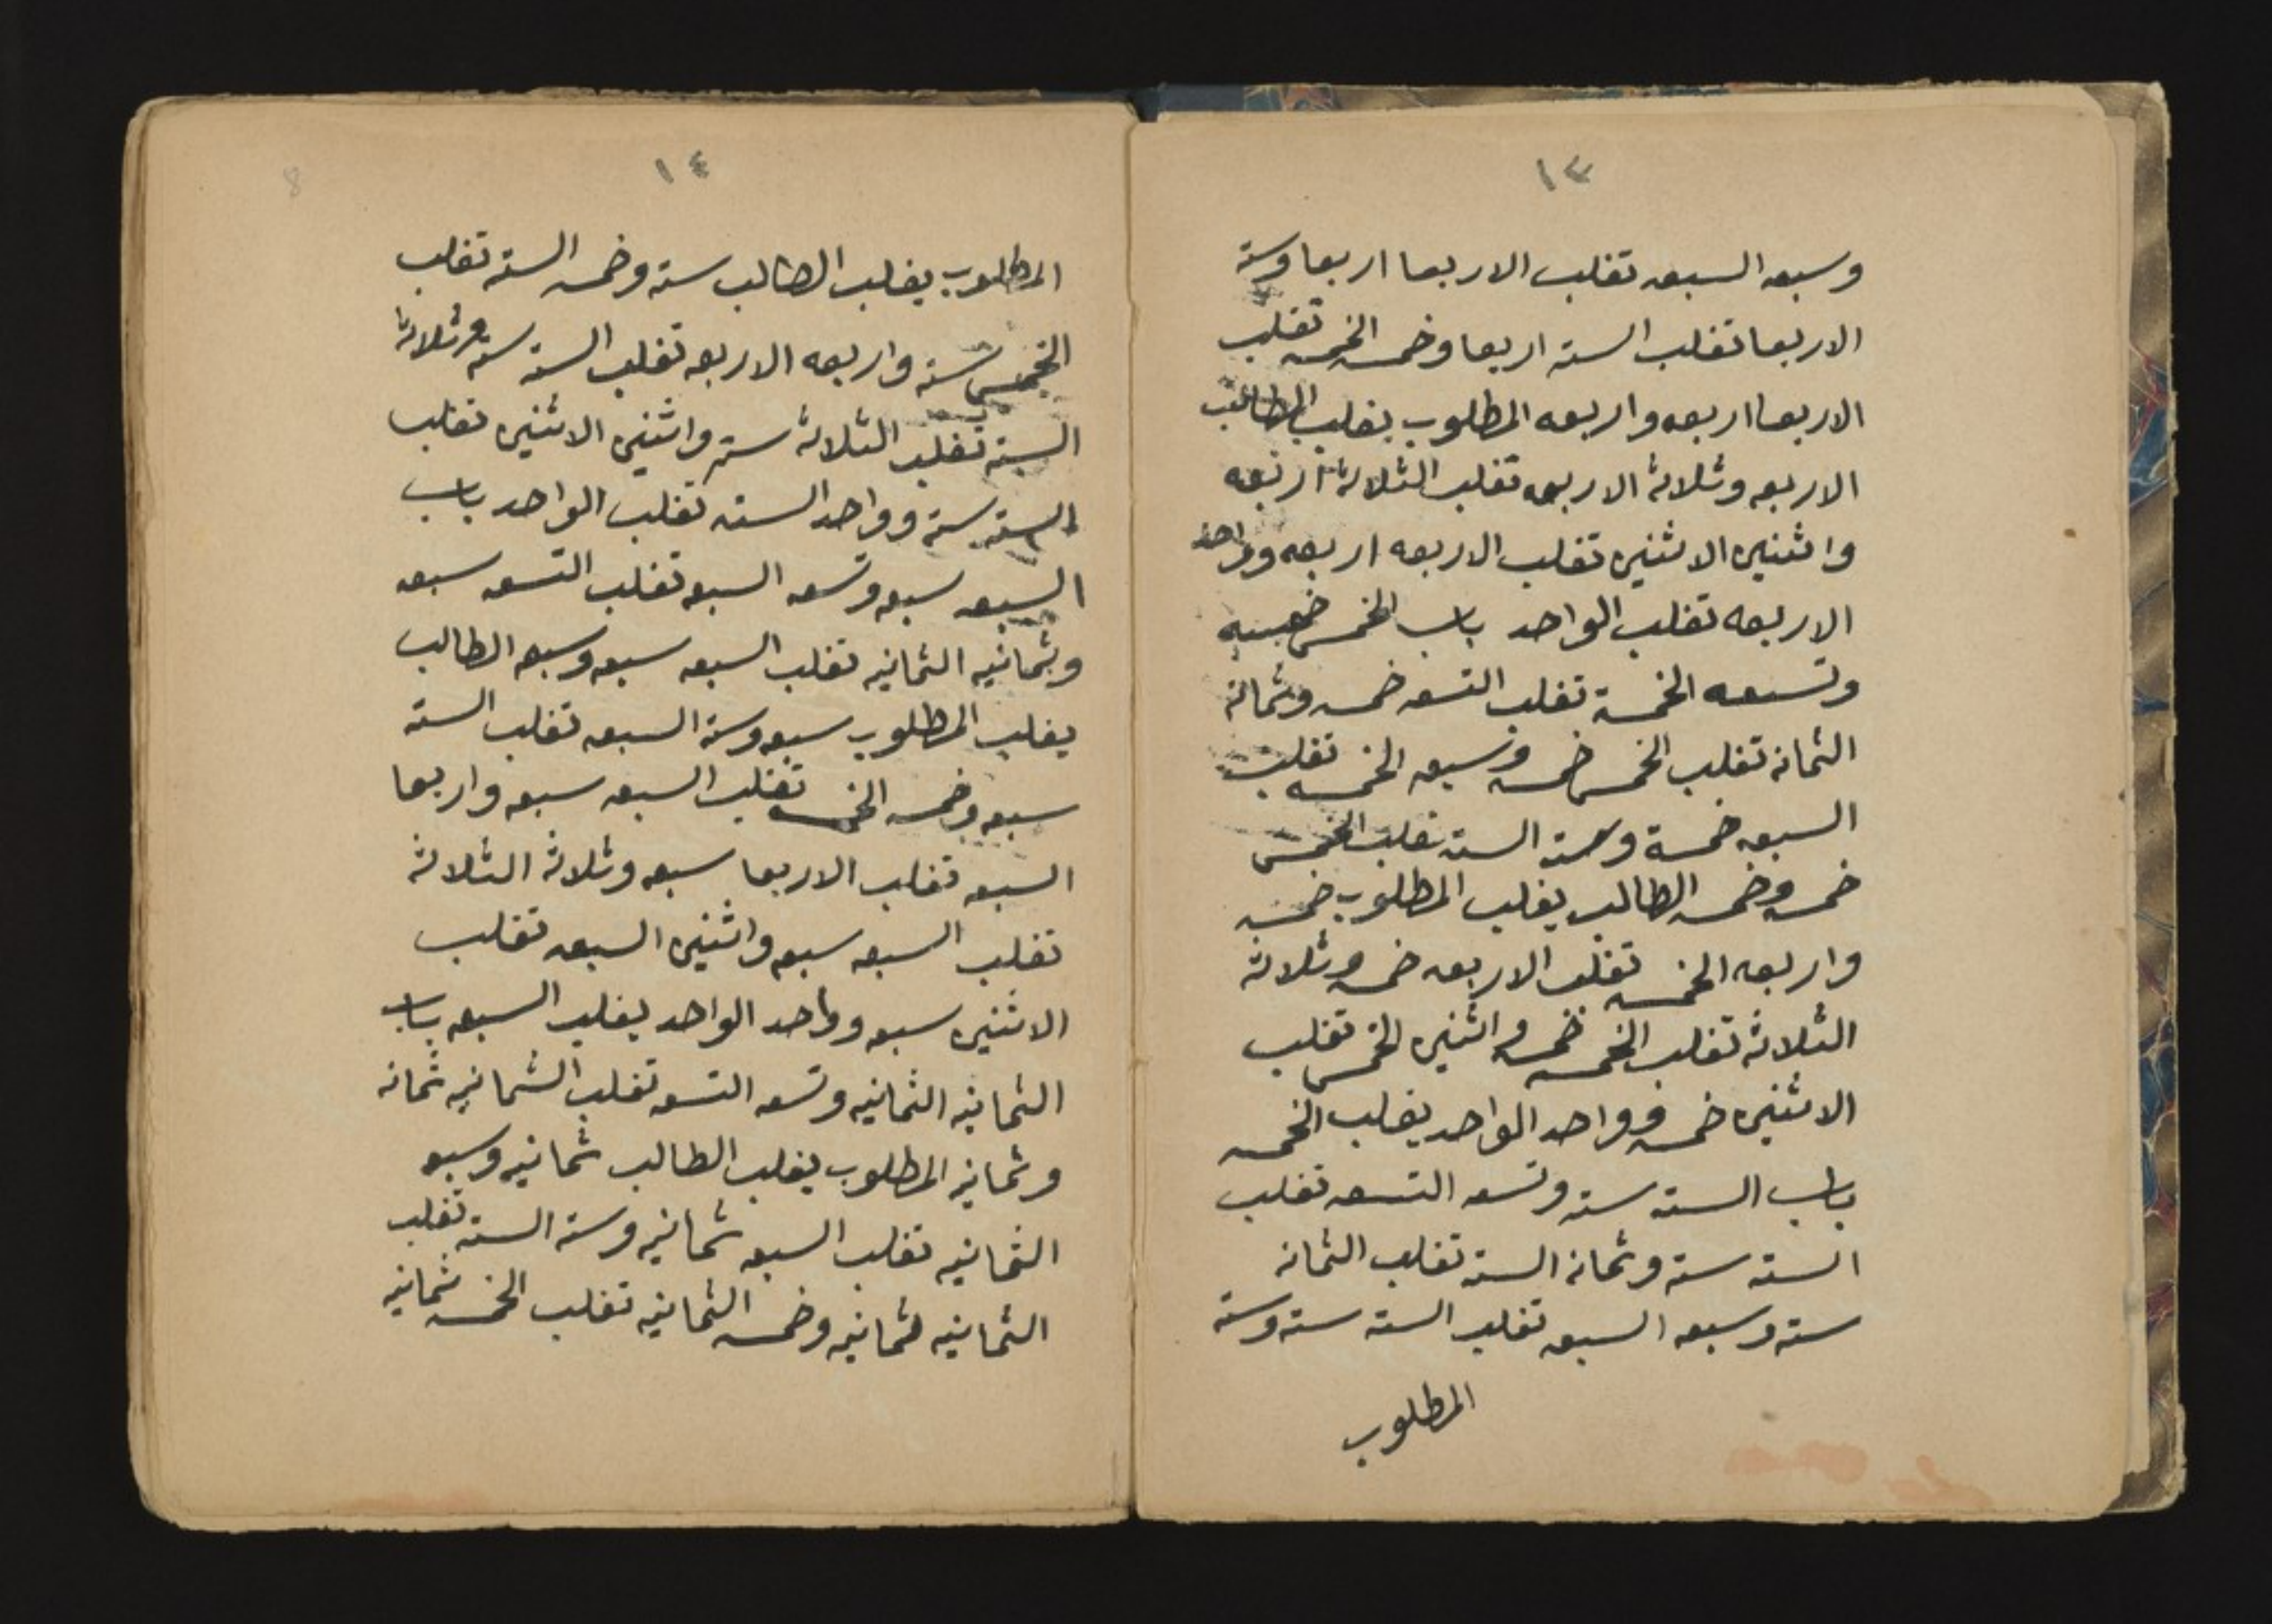 ١٣
وسبعه السبعه تغلب الاربعا اربعا وسته
الاربعا تغلب السته اربعا وخمسه الخمسه تغلب
الاربعا اربعه واربعه المطلوب يغلب الطالب
الاربعه وثلاثة الاربعه تغلب الثلاثة اربعه
واثنين الاثنين تغلب الاربعه اربعه وواحد
الاربعه تغلب الواحد باب الخمس خمسه
وتسعه الخمسة تغلب التسعه خمسه وثمانه
الثمانه تغلب الخمس خمسه وسبعه الخمسه تغلب
السبعه خمسة وسته السته تغلب الخمس
خمسه وخمسه الطالب يغلب المطلوب خمسه
واربعه الخمسه تغلب الاربعه خمسه وثلاثة
الثلاثة تغلب الخمسه خمسه واثنين الخمس تغلب
الاثنين خمسه وواحد الواحد يغلب الخمسه
باب السته سته وتسعه التسعه تغلب
السته سته وثمانه السته تغلب الثمانه
سته وسبعه السبعه تغلب السته سته وسته
المطلوب
١٤
8
المطلوب يغلب الطالب سته وخمسه السته تغلب
الخمس سته واربعه الاربعه تغلب السته سته وثلاثة
السته تغلب الثلاثة سته واثنين الاثنين تغلب
السته سته وواحد السته تغلب الواحد باب
السبعه سبعه وتسعه السبعه تغلب التسعه سبعه
وثمانيه الثمانيه تغلب السبعه سبعه وسبعه الطالب
يغلب المطلوب سبعه وسته السبعه تغلب السته
سبعه وخمسه الخمسه تغلب السبعه سبعه واربعا
السبعه تغلب الاربعا سبعه وثلاثة الثلاثة
تغلب السبعه سبعه واثنين السبعه تغلب
الاثنين سبعه وواحد الواحد يغلب السبعه باب
الثمانيه الثمانيه وتسعه التسعه تغلب الثمانيه ثمانه
وثمانيه المطلوب يغلب الطالب ثمانيه وسبعه
الثمانيه تغلب السبعه ثمانيه وسته السته تغلب
الثمانيه ثمانيه وخمسه الثمانيه تغلب الخمسه ثمانيه